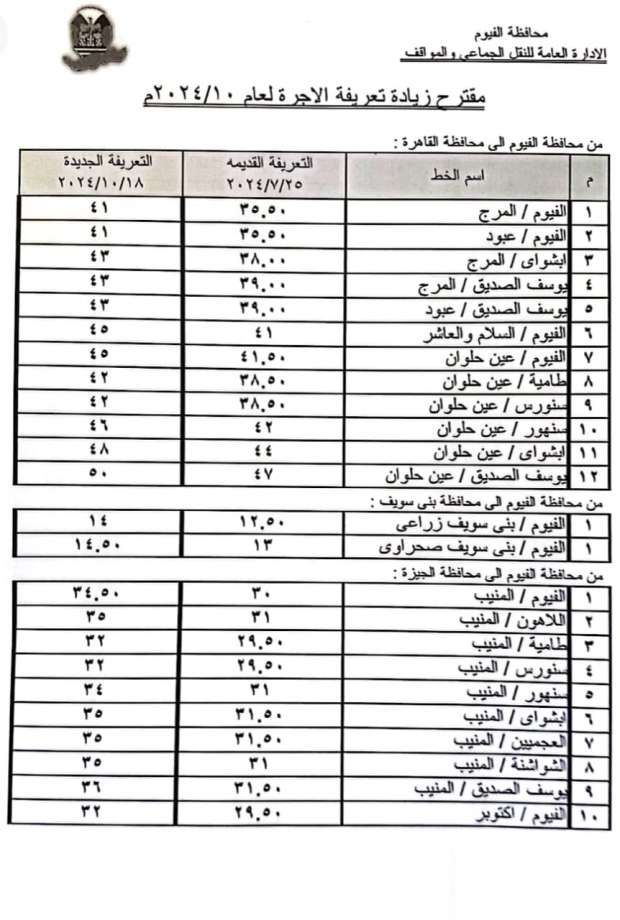 محافظة الفيوم
الادارة العامة للنقل الجماعى والمواقف
مقترح زيادة تعريفة الاجرة لعام ٢٠٢٤/١٠م
من محافظة الفيوم الى محافظة القاهرة :
م اسم الخط التعريفة القديمه ٢٠٢٤/٧/٢٥ التعريفة الجديدة ٢٠٢٤/١٠/١٨
١ الفيوم / المرج ٣٥.٥٠ ٤١
٢ الفيوم / عبود ٣٥.٥٠ ٤١
٣ ابشواى / المرج ٣٨.٠٠ ٤٣
٤ يوسف الصديق / المرج ٣٩.٠٠ ٤٣
٥ يوسف الصديق / عبود ٣٩.٠٠ ٤٣
٦ الفيوم / السلام والعاشر ٤١ ٤٥
٧ الفيوم / عين حلوان ٤١.٥٠ ٤٥
٨ طامية / عين حلوان ٣٨.٥٠ ٤٢
٩ سنورس / عين حلوان ٣٨.٥٠ ٤٢
١٠ سنهور / عين حلوان ٤٢ ٤٦
١١ ابشواى / عين حلوان ٤٤ ٤٨
١٢ يوسف الصديق / عين حلوان ٤٧ ٥٠
من محافظة الفيوم الى محافظة بنى سويف :
١ الفيوم / بنى سويف زراعى ١٢.٥٠ ١٤
١ الفيوم / بنى سويف صحراوى ١٣ ١٤.٥٠
من محافظة الفيوم الى محافظة الجيزة :
١ الفيوم / المنيب ٣٠ ٣٤.٥٠
٢ اللاهون / المنيب ٣١ ٣٥
٣ طامية / المنيب ٢٩.٥٠ ٣٢
٤ سنورس / المنيب ٢٩.٥٠ ٣٢
٥ سنهور / المنيب ٣١ ٣٤
٦ ابشواى / المنيب ٣١.٥٠ ٣٥
٧ العجميين / المنيب ٣١.٥٠ ٣٥
٨ الشواشنة / المنيب ٣١ ٣٥
٩ يوسف الصديق / المنيب ٣١.٥٠ ٣٦
١٠ الفيوم / اكتوبر ٢٩.٥٠ ٣٢